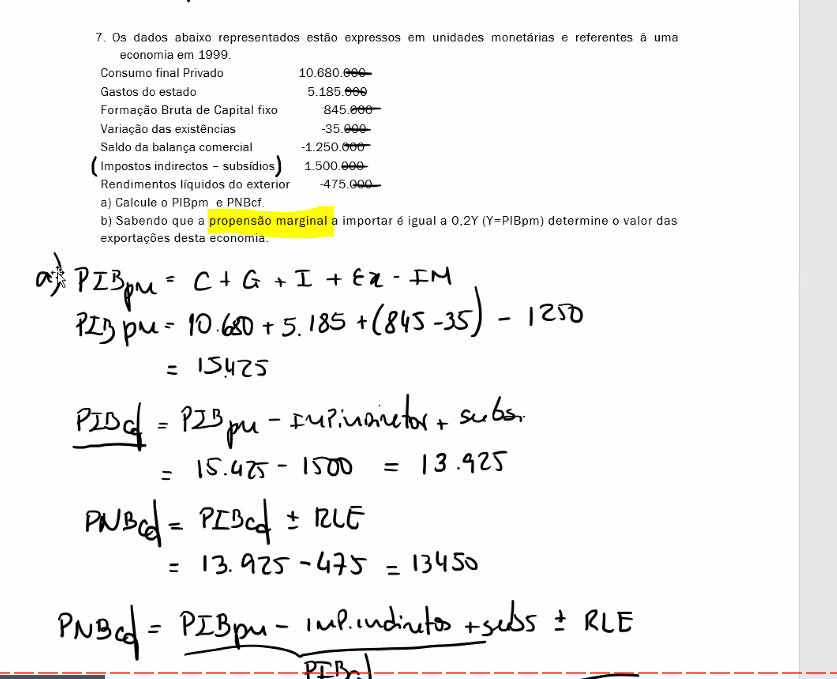 7. Os dados abaixo representados estão expressos em unidades monetárias e referentes à uma
economia em 1999.
Consumo final Privado 10.680.000
Gastos do estado 5.185.000
Formação Bruta de Capital fixo 845.000
Variação das existências -35.000
Saldo da balança comercial -1.250.000
(Impostos indirectos – subsídios) 1.500.000
Rendimentos líquidos do exterior -475.000
a) Calcule o PIBpm e PNBcf.
b) Sabendo que a propensão marginal a importar é igual a 0,2Y (Y=PIBpm) determine o valor das
exportações desta economia.
a) PIBpm = C + G + I + Ex - IM
PIBpm = 10.680 + 5.185 + (845 -35) - 1250
= 15.425
PIBcf = PIBpm - IMP.indiretos + subs.
= 15.425 - 1500 = 13.925
PNBcf = PIBcf ± RLE
= 13.925 - 475 = 13450
PNBcf = PIBpm - imp.indiretos + subs ± RLE
PIBcf